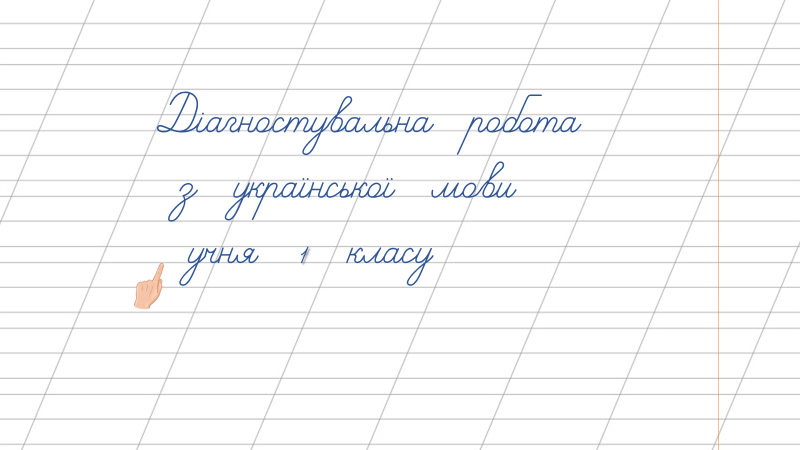 Діагностувальна робота
з української мови
учня 1 класу